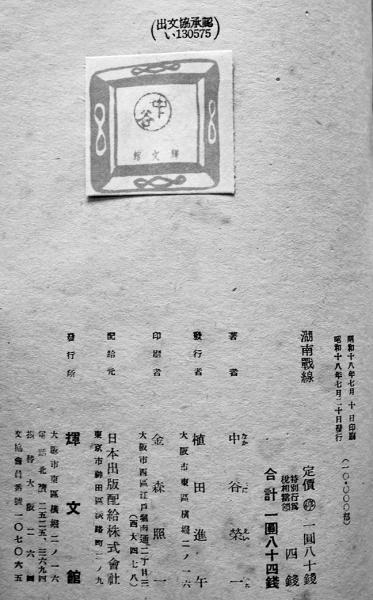 出文協承認
い130575
中谷
輝文館
昭和十八年七月十日印刷
昭和十八年七月二十日發行
(一〇,〇〇〇部)
湖南戰線
定價 停 一圓八十錢
特別行爲税相當額 四錢
合計一圓八十四錢
著者 中谷榮一
發行者 植田進午
大阪市東區横堀二ノ一六
印刷者 金森照一
大阪市西區江戸堀南通二丁目三
(西大四七八)
配給元 日本出版配給株式會社
東京市神田區淡路町二ノ九
發行所 輝文館
大阪市東區横堀二ノ一六
電話北濱二五二五・三六九四
振替大阪一六一四
文協會員番號一〇七〇六五